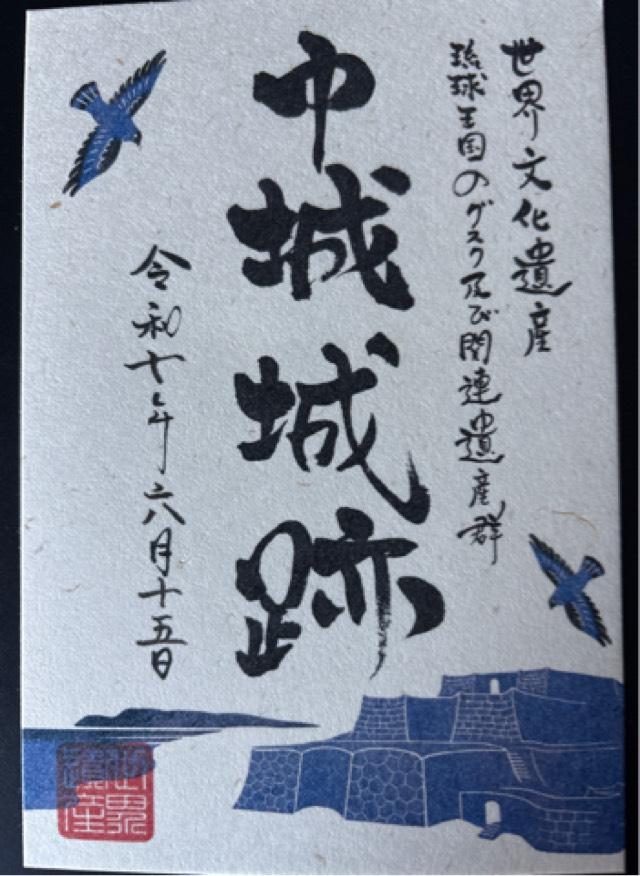 世界文化遺産
琉球王国のグスク及び関連遺産群
中城城跡
令和七年六月十五日
世界遺産